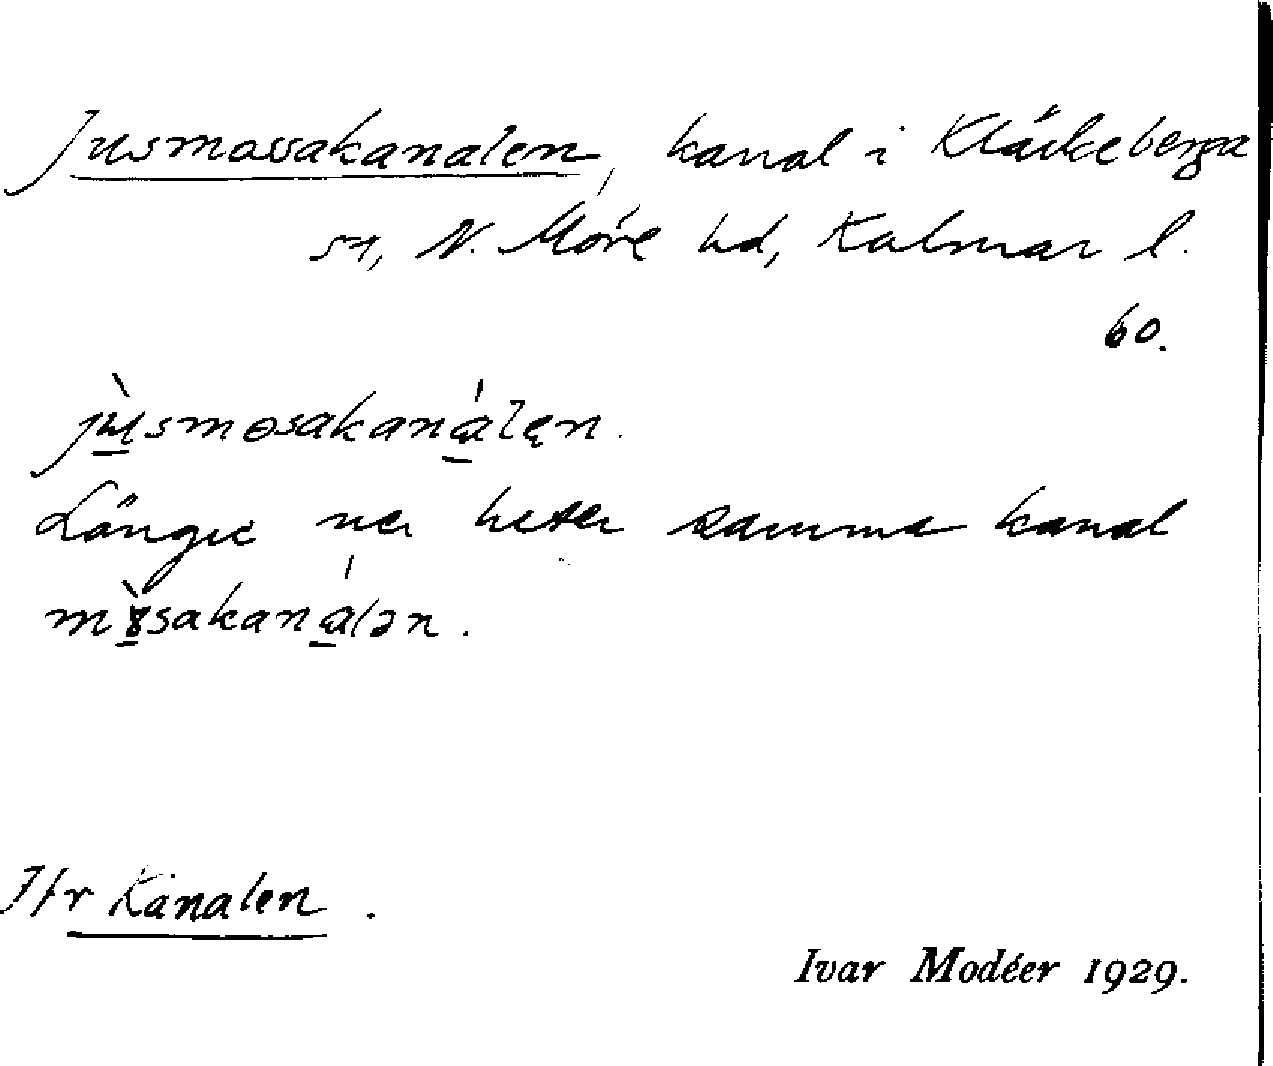 Jusmossakanalen, kanal i Kläckeberga
sn, N. Möre hd, Kalmar l.
60.
jùsmosakanálen.
Längre ner heter samma kanal
mòsakanálən.
Jfr Kanalen.
Ivar Modéer 1929.